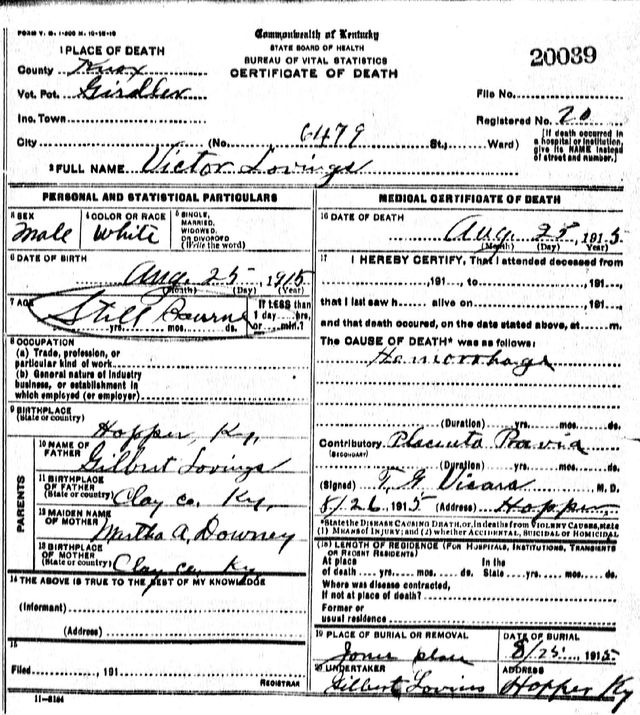 FORM V. S. 1-200 M. 10-18-10
Commonwealth of Kentucky
STATE BOARD OF HEALTH
BUREAU OF VITAL STATISTICS
CERTIFICATE OF DEATH
20039
1 PLACE OF DEATH
County Knox
Vot. Pot. Girdler
Inc. Town
City (No. 6479 St., Ward)
File No.
Registered No. 20
[If death occurred in
a hospital or institution,
give its NAME instead
of street and number.]
2 FULL NAME Victor Lovings
PERSONAL AND STATISTICAL PARTICULARS
3 SEX
Male
4 COLOR OR RACE
White
5 SINGLE,
MARRIED,
WIDOWED,
OR DIVORCED
(Write the word)
6 DATE OF BIRTH
Aug. 25 1915
(Month) (Day) (Year)
7 AGE
Still Bourne
yrs. mos. ds.
If LESS than
1 day hrs.
or min.?
8 OCCUPATION
(a) Trade, profession, or
particular kind of work
(b) General nature of industry
business, or establishment in
which employed (or employer)
9 BIRTHPLACE
(State or country)
Hopper, Ky,
PARENTS
10 NAME OF
FATHER
Gilbert Lovings
11 BIRTHPLACE
OF FATHER
(State or country)
Clay co. Ky,
12 MAIDEN NAME
OF MOTHER
Mirtha A, Downey
13 BIRTHPLACE
OF MOTHER
(State or country)
Clay co. Ky
14 THE ABOVE IS TRUE TO THE BEST OF MY KNOWLEDGE
(Informant)
(Address)
15
Filed , 191
REGISTRAR
11-8184
MEDICAL CERTIFICATE OF DEATH
16 DATE OF DEATH
Aug. 25 1915
(Month) (Day) (Year)
17 I HEREBY CERTIFY, That I attended deceased from
, 191 , to , 191 ,
that I last saw h alive on , 191 ,
and that death occured, on the date stated above, at m.
The CAUSE OF DEATH* was as follows:
Hemorrhage
(Duration) yrs. mos. ds.
Contributory Placinta Pravia
(SECONDARY)
(Duration) yrs. mos. ds.
(Signed) T. G Vicars M. D.
8/26 1915 (Address) Hopper
*State the DISEASE CAUSING DEATH, or, in deaths from VIOLENT CAUSES, state
(1) MEANS OF INJURY; and (2) whether ACCIDENTAL, SUICIDAL or HOMICIDAL
(18) LENGTH OF RESIDENCE (FOR HOSPITALS, INSTITUTIONS, TRANSIENTS
OR RECENT RESIDENTS)
At place In the
of death yrs. mos. ds. State yrs. mos. ds.
Where was disease contracted,
If not at place of death?
Former or
usual residence
19 PLACE OF BURIAL OR REMOVAL
Jones place
DATE OF BURIAL
8/25 1915
20 UNDERTAKER
Gilbert Lovins
ADDRESS
Hopper Ky